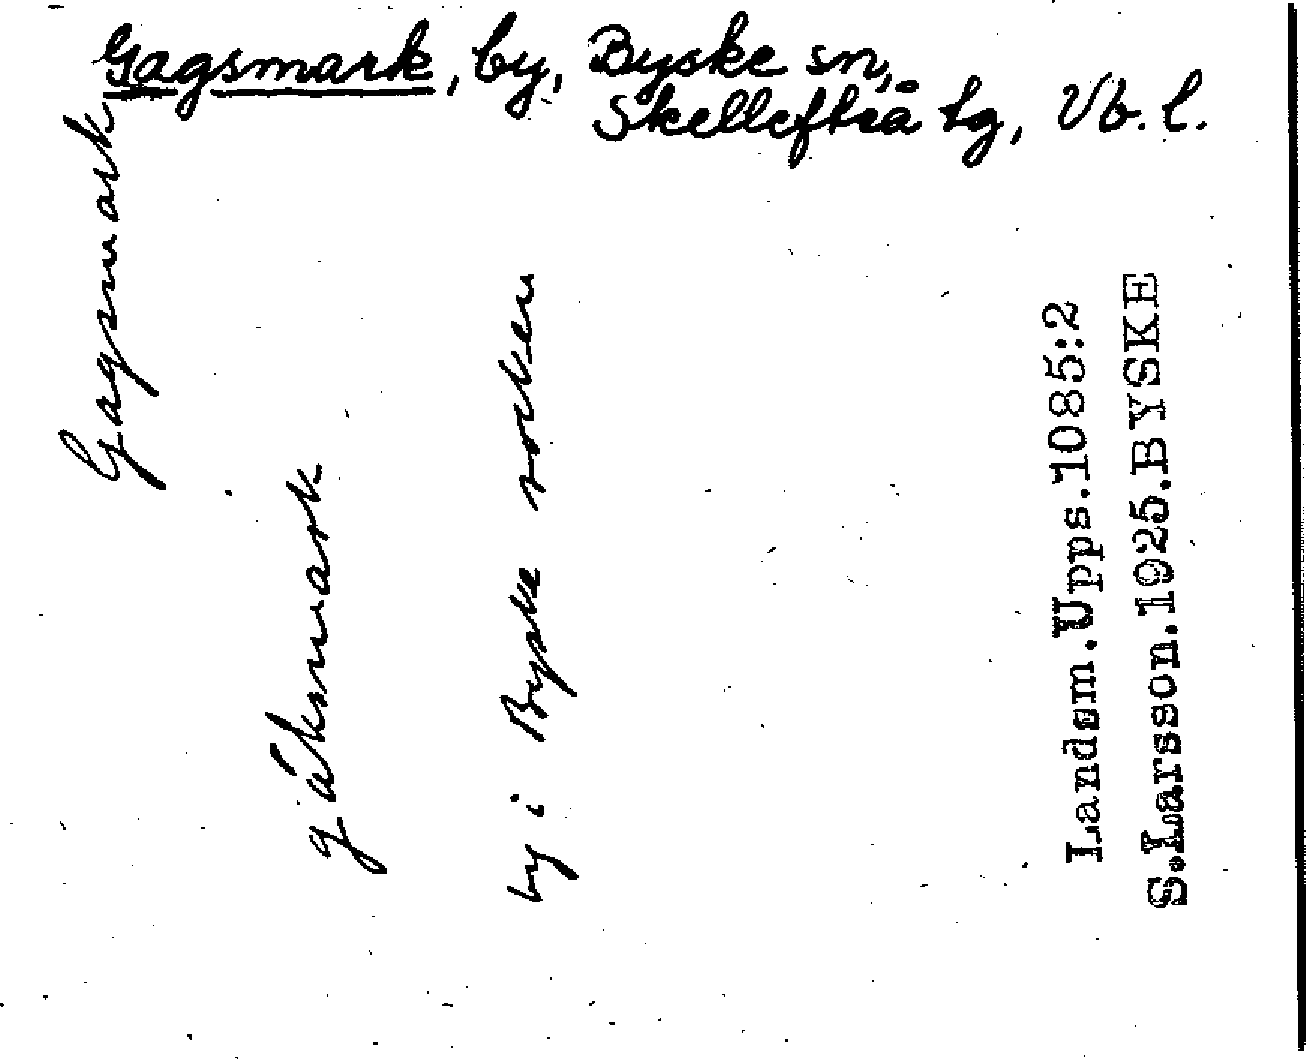 Gagsmark, by, Byske sn,
Skellefteå tg, Vb. l.
Gagsmark
gáksmark
by i Byske socken
Landsm.Upps.1085:2
S.Larsson.1925.BYSKE